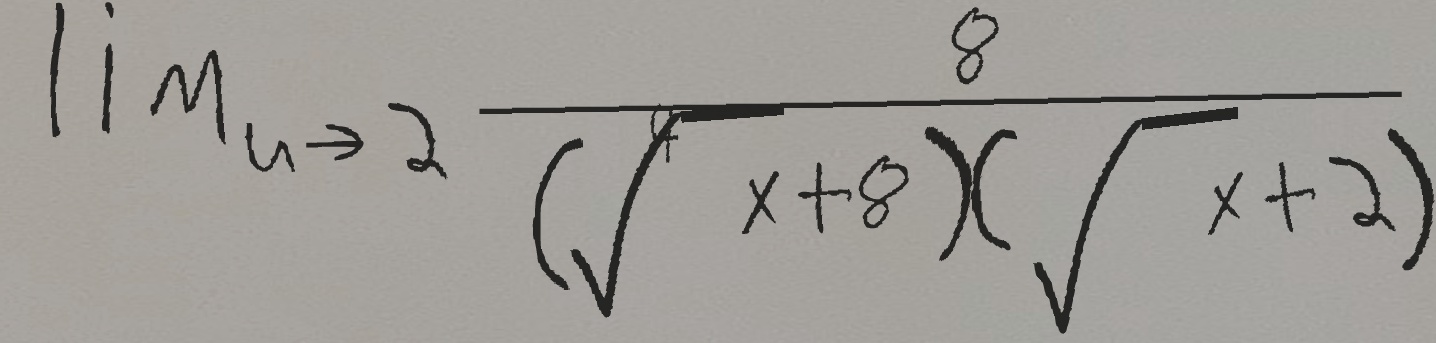 lim_{u→2} \frac{8}{(\sqrt[4]{x+8})(\sqrt{x+2})}